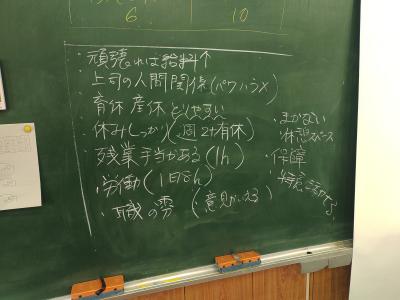 6 10
・頑張れば給料↑
・上司の人間関係(パワハラ×)
・育休産休とりやすい
・休みしっかり(週2+有休)
・残業手当がある(1h)
・労働(1日8h)
・職の雰(意見がいえる)
・まかない
休憩スペース
・保障
・特意